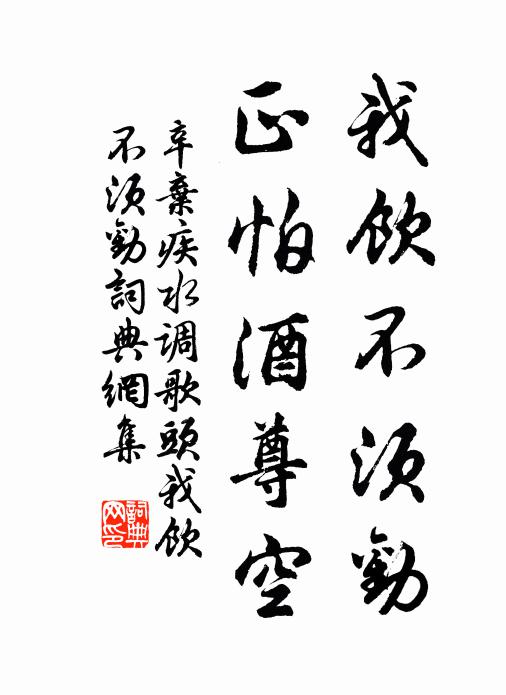 我飲不須勸
正怕酒尊空
辛棄疾水调歌頭我飲
不須勸詞典網集
詞典网印